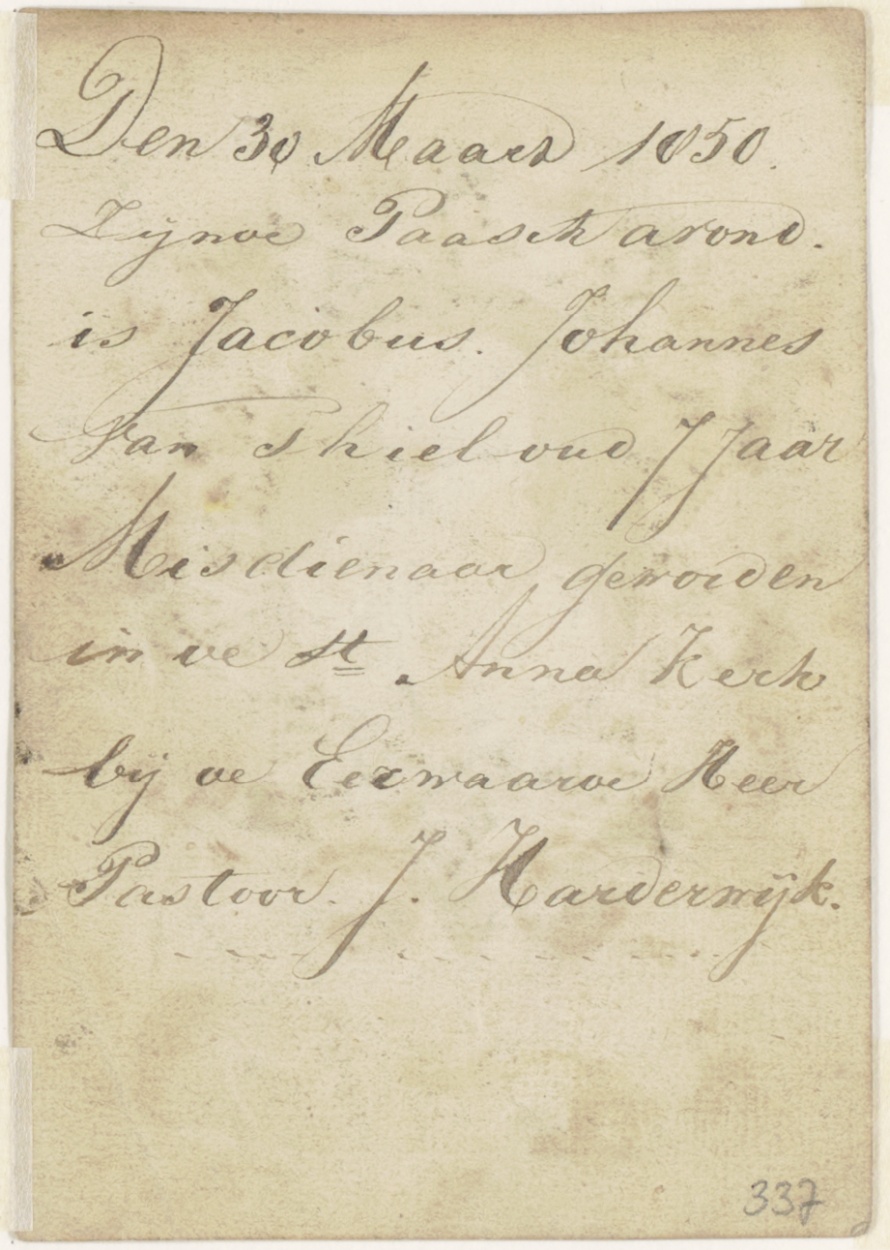 Den 30 Maart 1850.
Zijnde Paasch avond.
is Jacobus. Johannes
Van Thiel oud 7 Jaar
Misdienaar geworden
in de St Anna Kerk
bij de Eerwaarde Heer
Pastoor. J. Harderwijk.
337